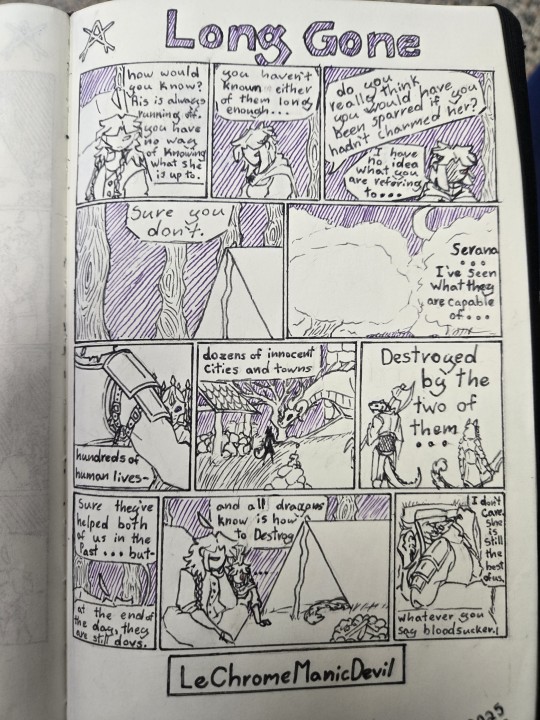 Long Gone
how would
you know?
Ris is always
running off.
you have
no way
of knowing
what she
is up to.
you haven't
known either
of them long
enough...
do you
really think
you would have
been sparred if you
hadn't charmed her?
I have
no idea
what you
are refering
to...
Sure you
don't.
Serana
...
I've seen
what they
are capable
of...
hundreds of
human lives-
dozens of innocent
Cities and towns
Destroyed
by the
two of
them
...
Sure they've
helped both
of us in the
Past... but-
at the end of
the day, they
are still dovs.
and all dragons
know is how
to Destroy
...
I don't
care,
she
is
still
the
best
of us.
whatever you
say bloodsucker.!
LeChromeManicDevil